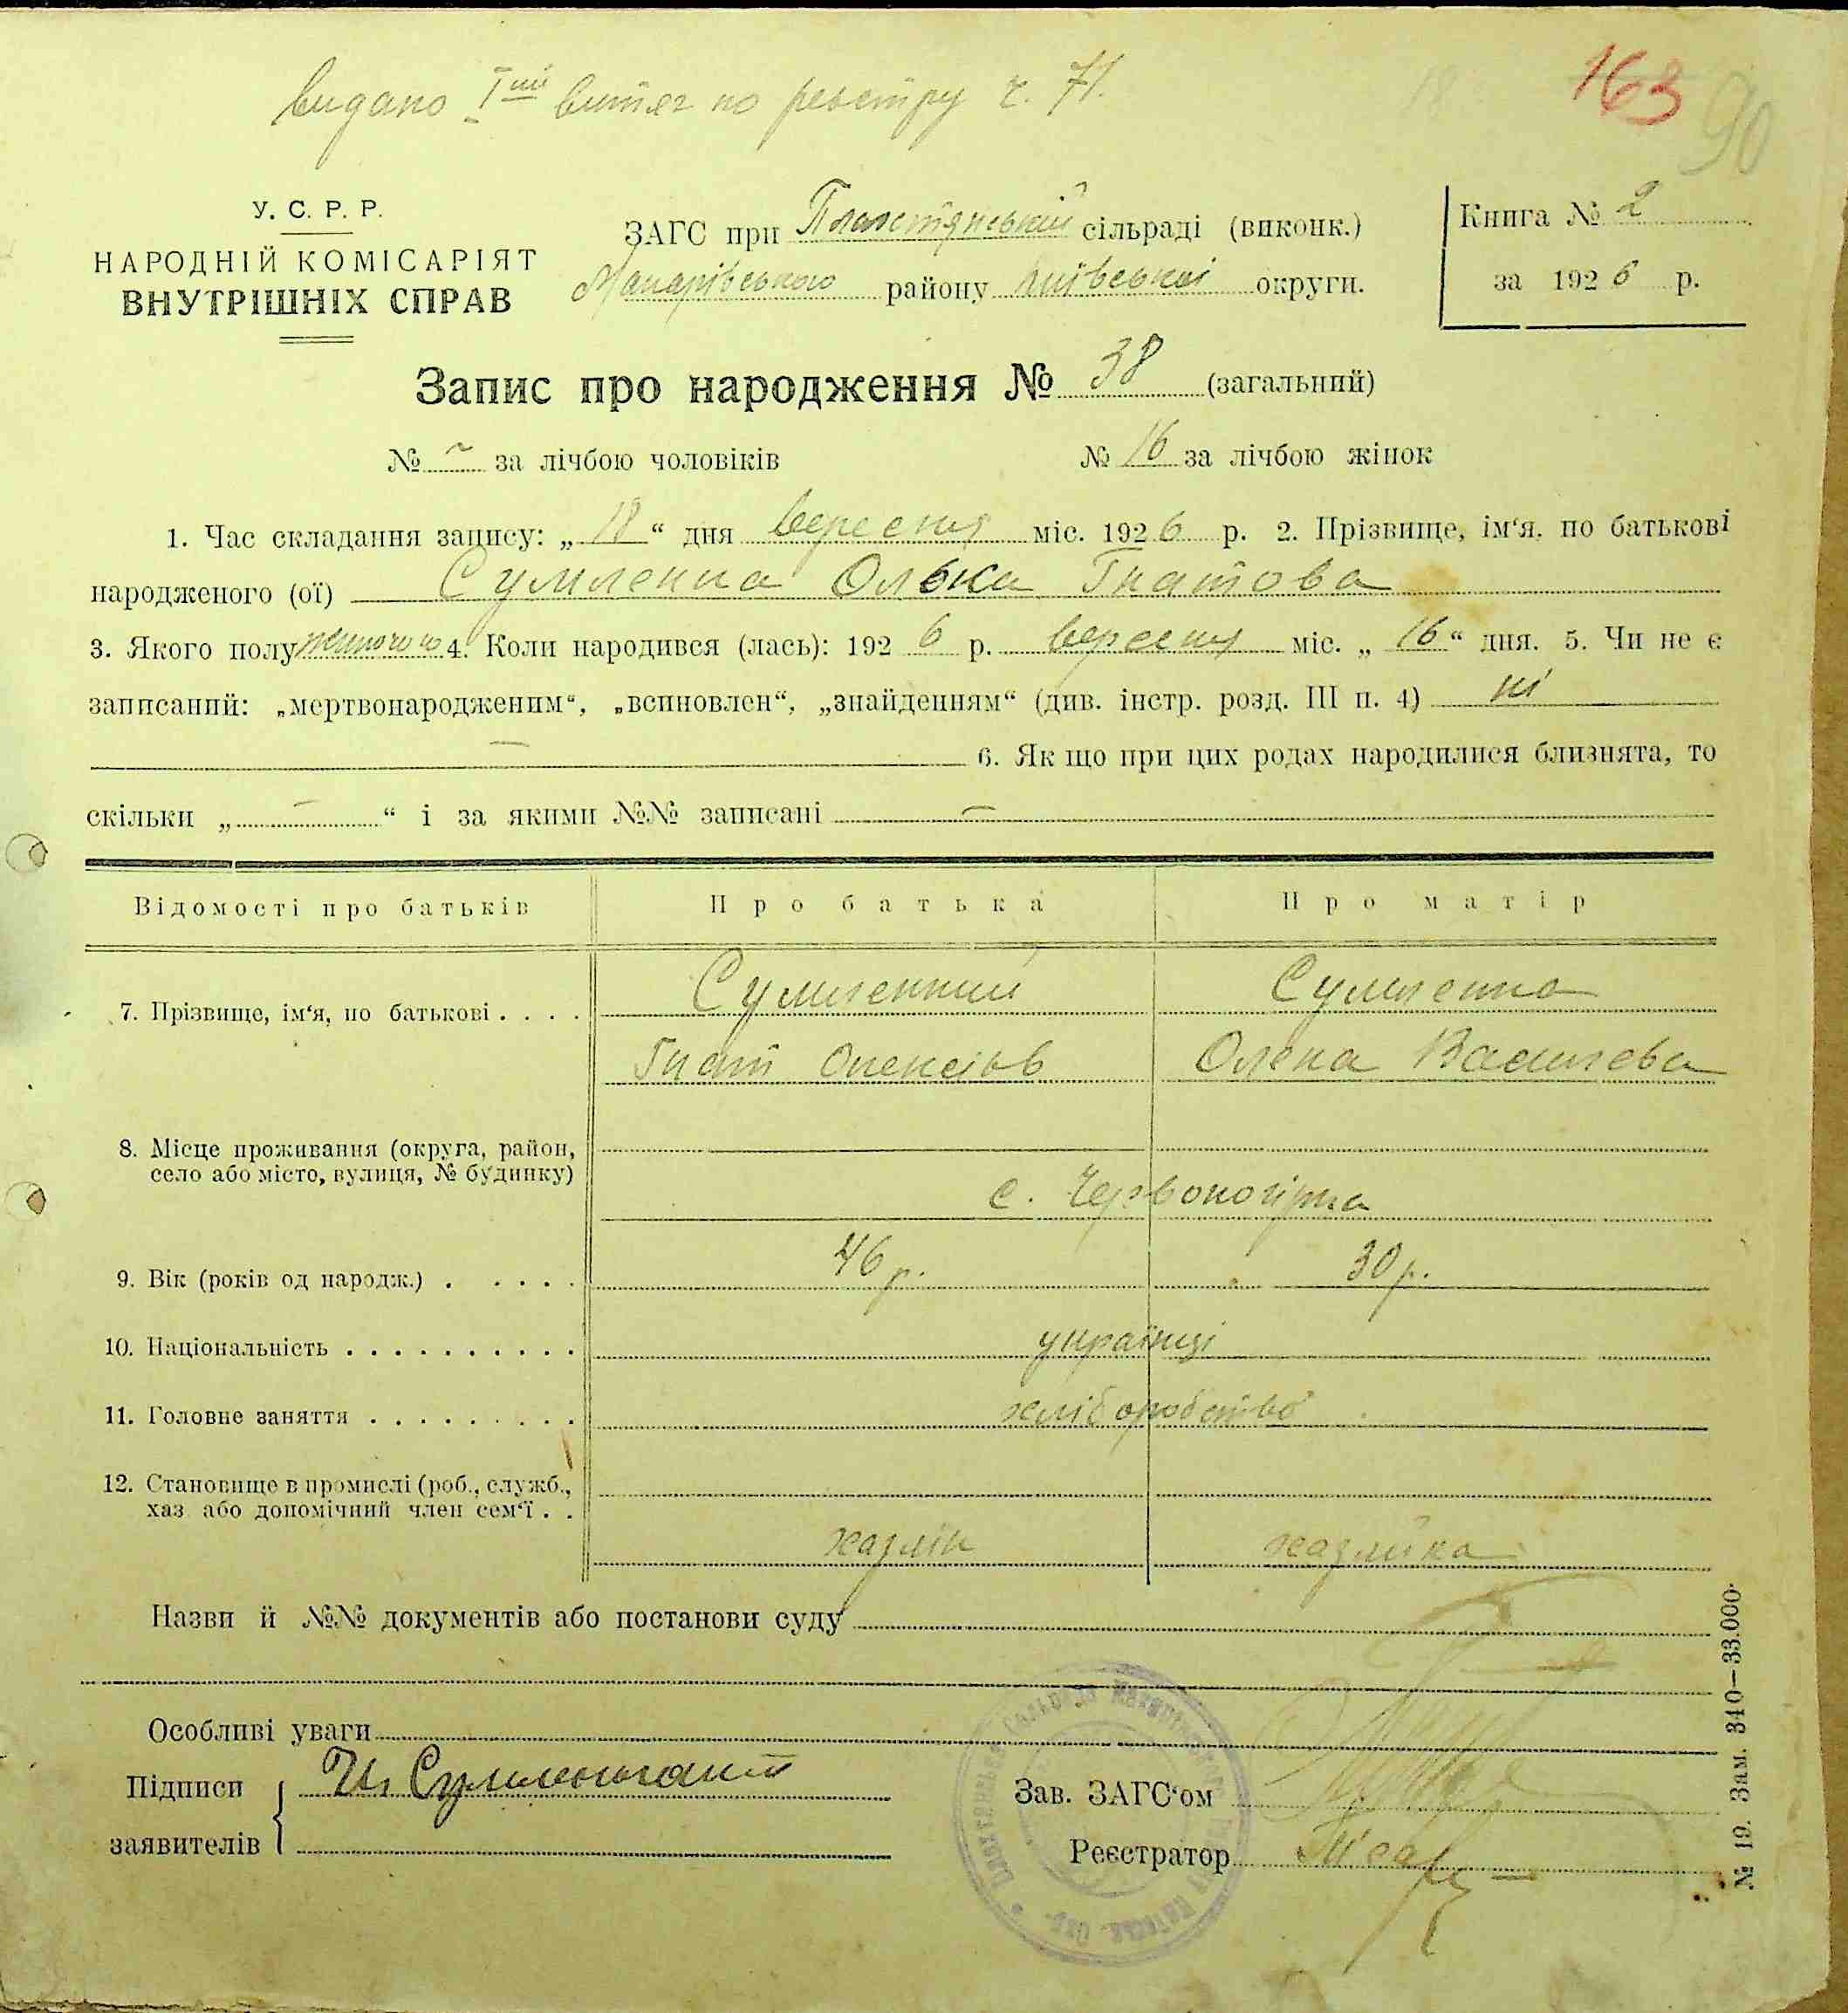 видано Iий витяг по реєстру ч. 71.
163
90
У. С. Р. Р.
НАРОДНІЙ КОМІСАРІЯТ
ВНУТРІШНІХ СПРАВ
ЗАГС при Плахтянській сільраді (виконк.)
Макарівського району Київської округи.
Книга № 2
за 1926 р.
Запис про народження № 38 (загальний)
№ – за лічбою чоловіків № 16 за лічбою жінок
1. Час складання запису: „18“ дня вересня міс. 1926 р. 2. Прізвище, ім'я, по батькові
народженого (ої) Сумленна Олька Гнатова
3. Якого полу жіночого 4. Коли народився (лась): 1926 р. вересня міс. „16“ дня. 5. Чи не є
записаний: „мертвонародженим“, „всиновлен“, „знайденням“ (див. інстр. розд. III п. 4) ні
– 6. Як що при цих родах народилися близнята, то
скільки „ – “ і за якими №№ записані –
Відомості про батьків Про батька Про матір
7. Прізвище, ім'я, по батькові . . . . Сумленний Сумленна
Гнат Олексіїв Олена Василева
8. Місце проживання (округа, район,
село або місто, вулиця, № будинку) с. Червоногірка
9. Вік (років од народж.) . . . . . 46 р. 30 р.
10. Національність . . . . . . . . . . українці
11. Головне заняття . . . . . . . . . хліборобство
12. Становище в промислі (роб., служб.,
хаз або допомічний член сем'ї . .
хазяїн хазяйка
Назви й №№ документів або постанови суду
Особливі уваги
Підписи
заявителів
Зав. ЗАГС'ом
Реєстратор
№ 19. Зам. 340—33.000